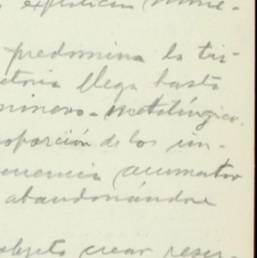 explotación minie-
predomina la tri-
etoria llega hasta
minero-metalúrgico
oporción de los in-
uencia acumular
abandonándose
objeto crear reser-